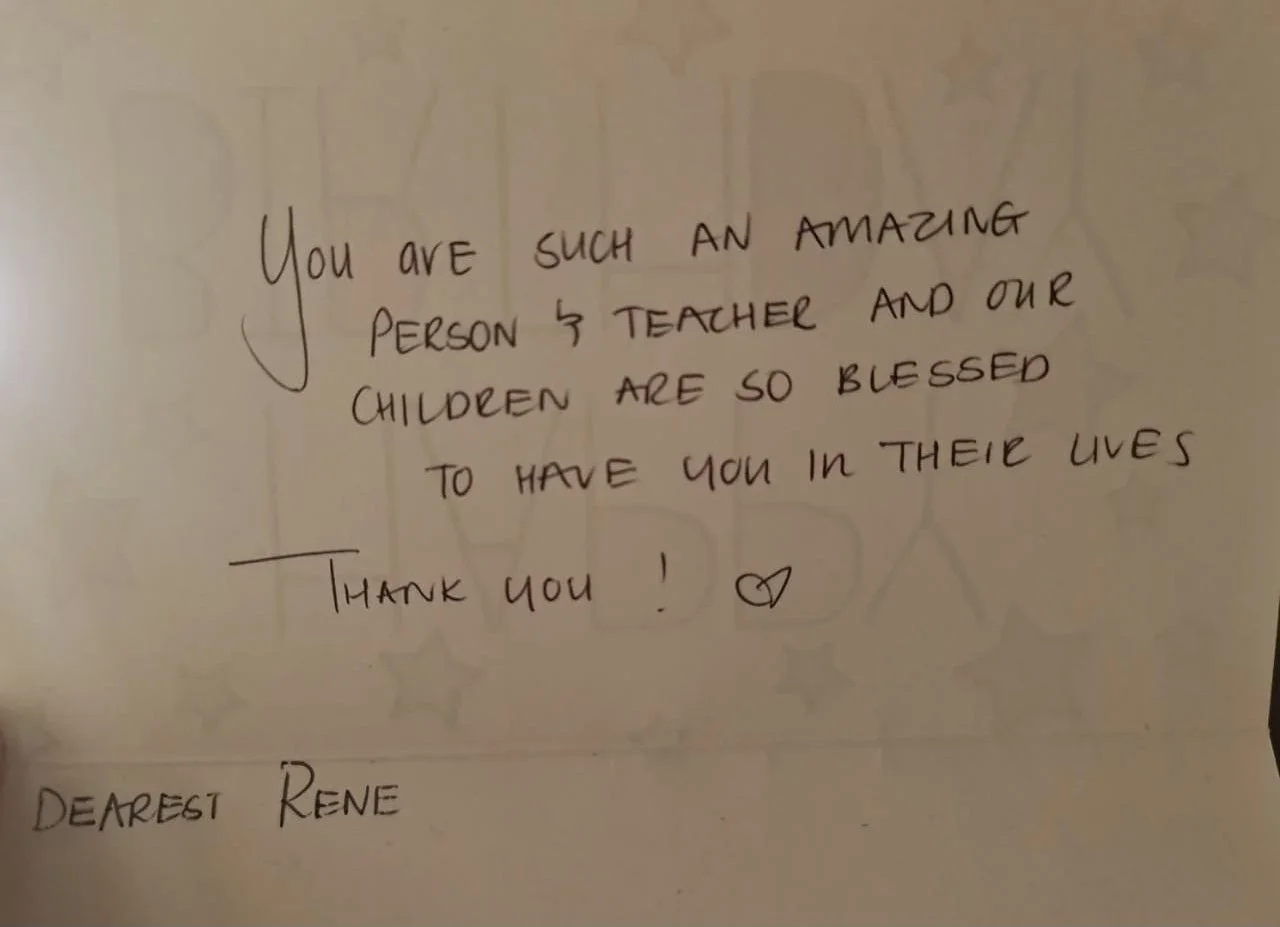 You are SUCH AN AMAZING
PERSON & TEACHER AND OUR
CHILDREN ARE SO BLESSED
TO HAVE YOU In THEIR LIVES
THANK YOU ! ♡
DEAREST RENE
BIRTHDAY
HAPPY